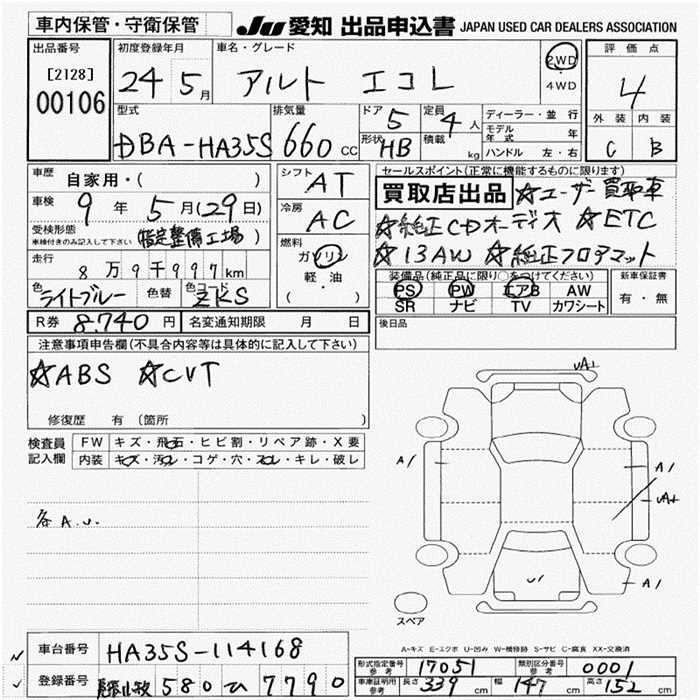 車内保管・守衛保管
JU 愛知 出品申込書 JAPAN USED CAR DEALERS ASSOCIATION
出品番号
[2128]
00106
初度登録年月
24 5月
車名・グレード
アルト エコL
2WD
4WD
評価点
4
外装 内装
C B
型式
DBA-HA35S
排気量
660cc
ドア 5
形状 HB
定員 4人
積載 kg
ディーラー・並行
モデル年式 年
ハンドル 左・右
車歴
自家用・( )
車検 9年 5月(29日)
受検形態
車検付きのみ記入して下さい
(指定整備工場)
走行
8万9千997km
色 ライトブルー 色替 色コード ZKS
シフト AT
冷房 AC
燃料
ガソリン
軽・油
( )
セールスポイント(正常に機能するものに限ります)
買取店出品 ☆ユーザー買取車
☆純正CDオーディオ ☆ETC
☆13AW ☆純正フロアマット
装備品(純正品に限り○をつけてください)
PS PW エアB AW
SR ナビ TV カワシート
新車保証書
有・無
後日品
R券 8.740円 名変通知期限 月 日
注意事項申告欄(不具合内容等は具体的に記入して下さい)
☆ABS ☆CVT
修復歴 有(箇所 )
検査員記入欄
FW キズ・飛石・ヒビ割・リペア跡・X要
内装 キズ・汚レ・コゲ・穴・スレ・キレ・破レ
各A.U.
A1
A1
A1
U1
スペア
A-キズ E-エクボ U-凹み W-補修跡 S-サビ C-腐食 XX-交換済
車台番号 HA35S-114168
登録番号 580 ひ 7790
形式指定番号 参考 17051
類別区分番号 参考 0001
車庫証明用 参考 長さ 339cm 幅 147cm 高さ 152cm